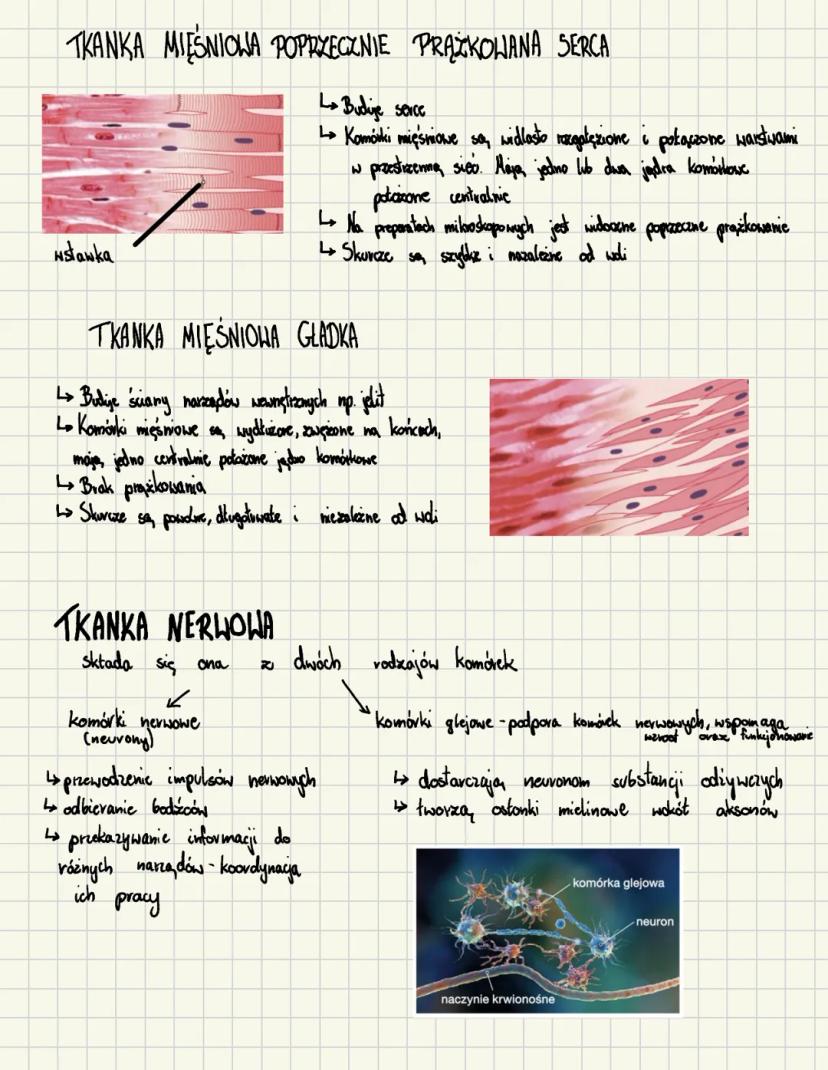 TKANKA MIĘŚNIOWA POPRZECZNIE PRĄŻKOWANA SERCA
↳ Buduje serce
↳ Komórki mięśniowe są widlasto rozgałęzione i połączone warstwami
w przestrzenną sieć. Mają jedno lub dwa jądra komórkowe
położone centralnie
↳ Na preparatach mikroskopowych jest widoczne poprzeczne prążkowanie
↳ Skurcze są szybkie i niezależne od woli
wstawka
TKANKA MIĘŚNIOWA GŁADKA
↳ Buduje ściany narządów wewnętrznych np. jelit
↳ Komórki mięśniowe są wydłużone, zwężone na końcach,
mają jedno centralnie położone jądro komórkowe
↳ Brak prążkowania
↳ Skurcze są powolne, długotrwałe i niezależne od woli
TKANKA NERWOWA
składa się ona z dwóch rodzajów komórek
komórki nerwowe
(neurony)
↳ przewodzenie impulsów nerwowych
↳ odbieranie bodźców
↳ przekazywanie informacji do
różnych narządów - koordynacja
ich pracy
komórki glejowe - podpora komórek nerwowych, wspomaga
wzrost oraz funkcjonowanie
↳ dostarczają neuronom substancji odżywczych
↳ tworzą osłonki mielinowe wokół aksonów
komórka glejowa
neuron
naczynie krwionośne